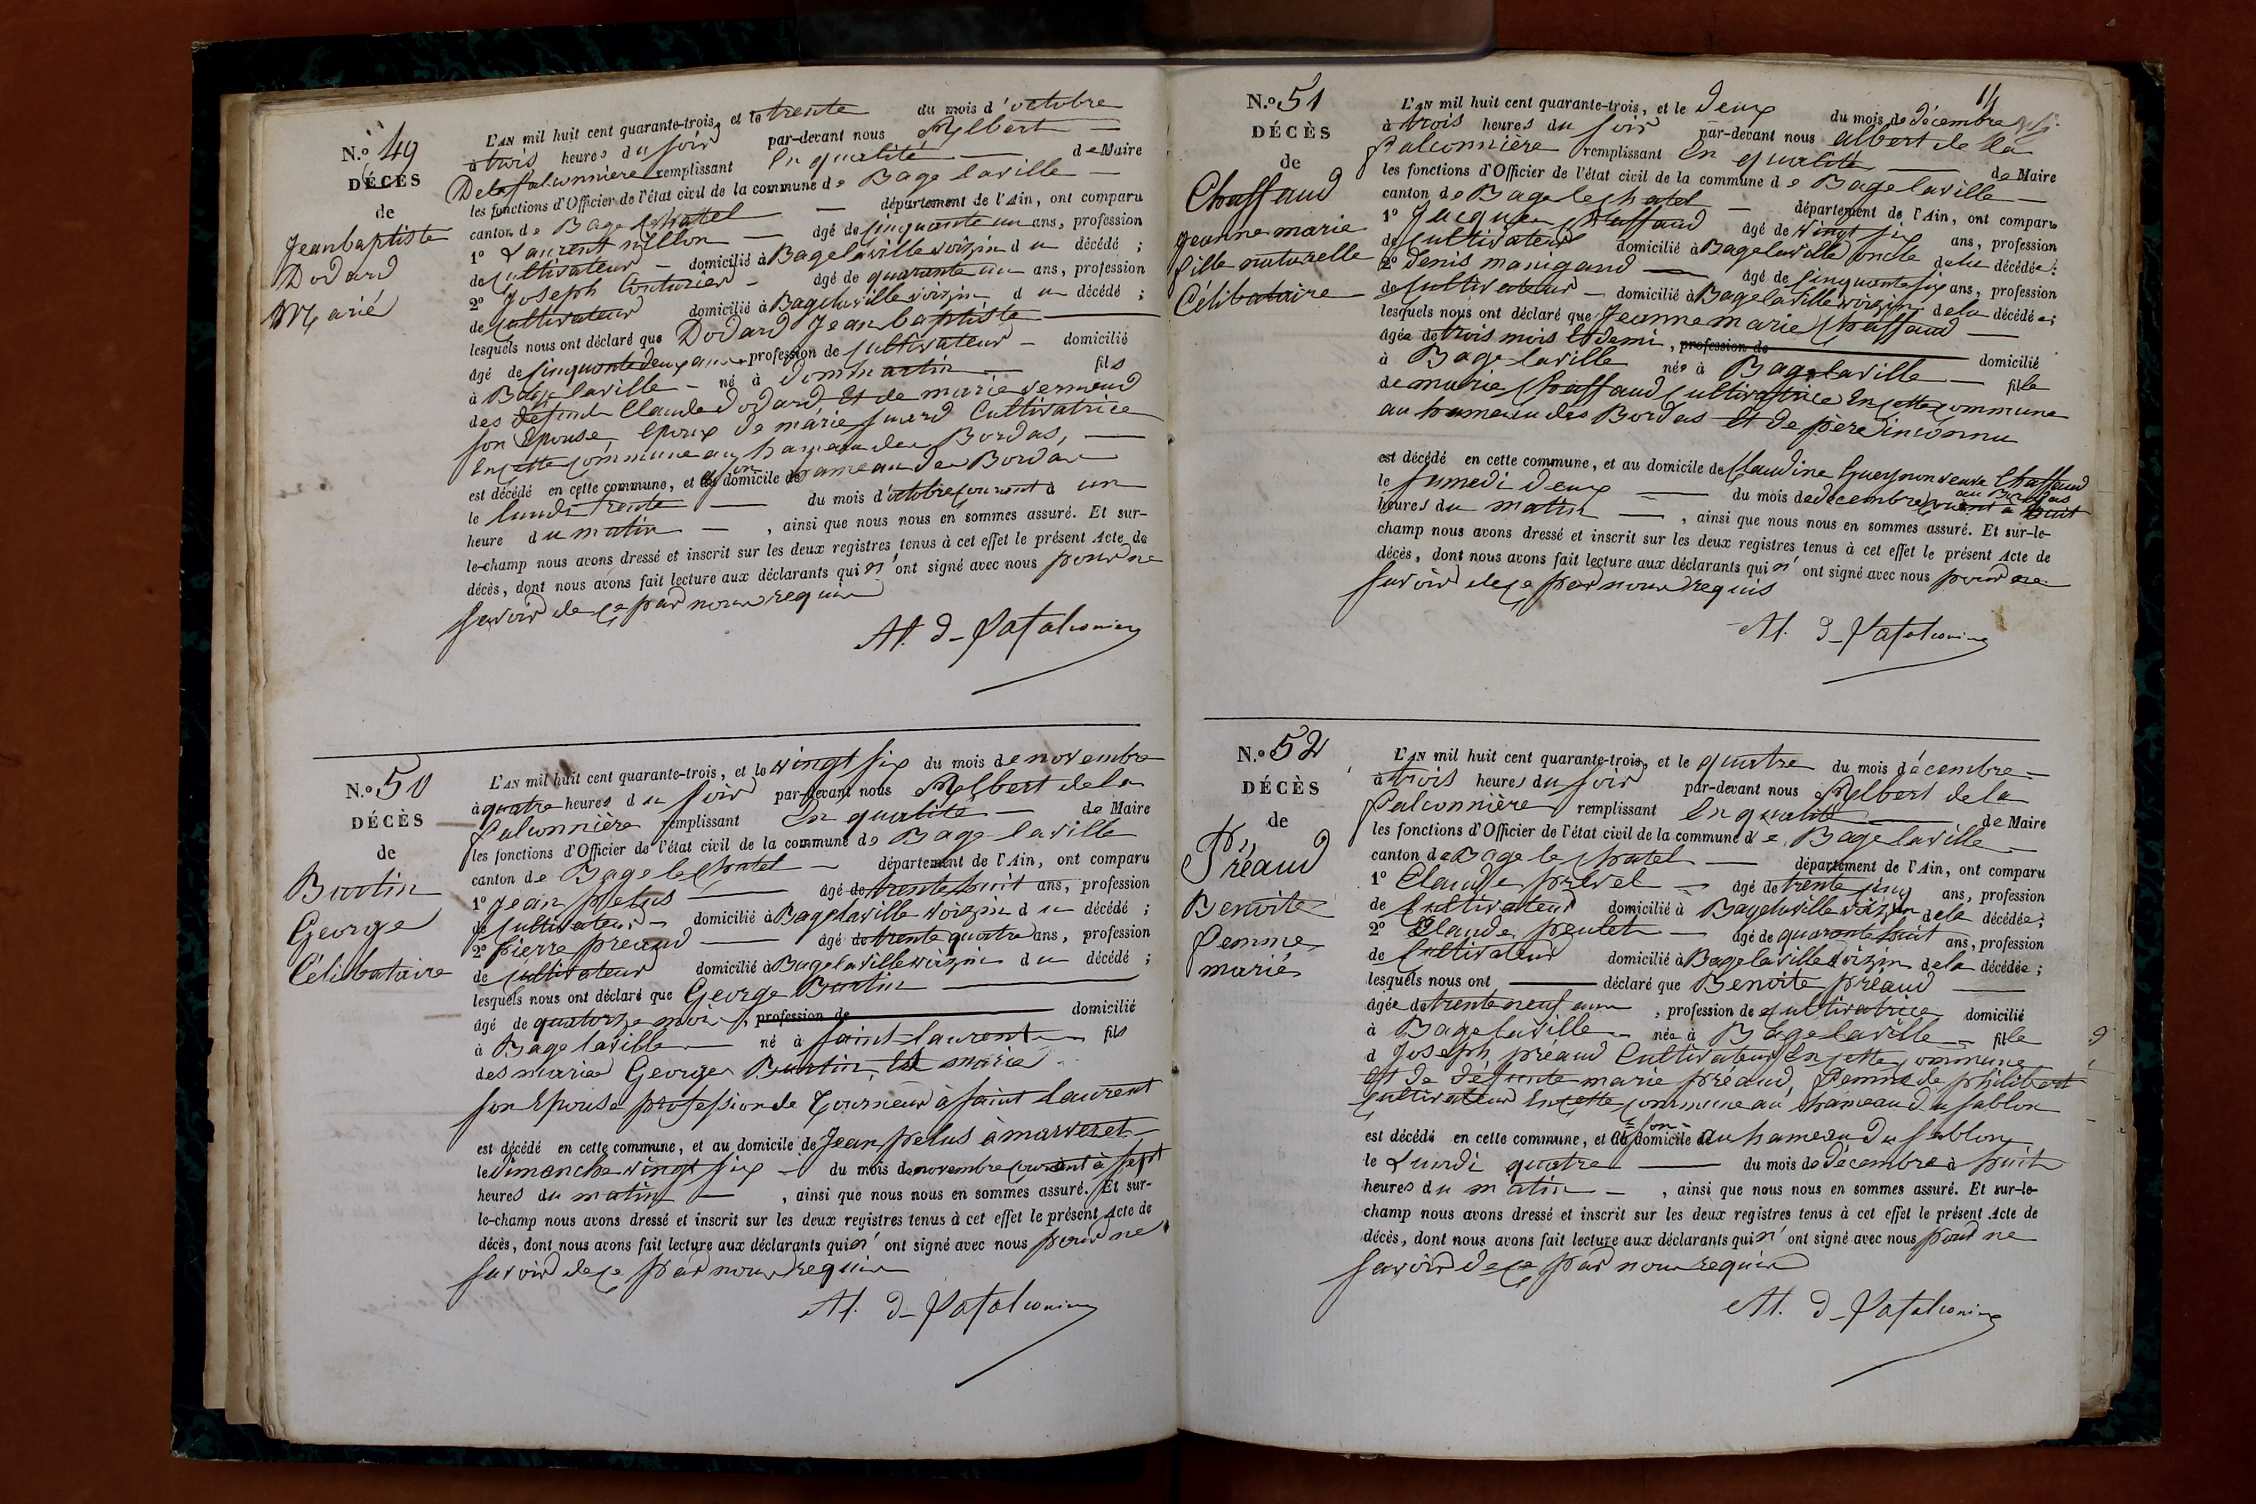 N.o 49
DÉCÈS
de
Jean baptiste
Dodard
Marié
L'AN mil huit cent quarante-trois, et le trente du mois d'octobre
à trois heures du soir par-devant nous Albert
Delafalconniere remplissant En qualité de Maire
les fonctions d'Officier de l'état civil de la commune de Bage laville
canton de Bage le chatel département de l'Ain, ont comparu
1o Laurent agé de cinquante un ans, profession
de cultivateur domicilié à Bage laville voizin du décédé ;
2o Joseph Couturier agé de quarante un ans, profession
de cultivateur domicilié à Bage laville voizin du décédé ;
lesquels nous ont déclaré que Dodard Jean baptiste
agé de cinquante deux ans profession de cultivateur domicilié
à Bage laville né à dommartin fils
des defunts Claude dodard Et de marie vermeud
son Epouse, Epoux de marie Cultivatrice
En cette commune au hameau des Bordas,
est décédé en cette commune, et son domicile hameau des Bordas
le lundi trente du mois d'octobre courant à un
heure du matin , ainsi que nous nous en sommes assuré. Et sur-
le-champ nous avons dressé et inscrit sur les deux registres tenus à cet effet le présent Acte de
décès, dont nous avons fait lecture aux déclarants qui n'ont signé avec nous pour ne
savoir de ce par nous requis
Al. d- Lafalconière
N.o 50
DÉCÈS
de
Burtin
George
Célibataire
L'AN mil huit cent quarante-trois, et le vingt six du mois de novembre
à quatre heures du soir par-devant nous Albert de la
falconnière remplissant En qualité de Maire
les fonctions d'Officier de l'état civil de la commune de Bage laville
canton de Bage le chatel département de l'Ain, ont comparu
1o jean pelus agé de trente huit ans, profession
de cultivateur domicilié à Bage laville voizin du décédé ;
2o pierre preaud agé de trente quatre ans, profession
de cultivateur domicilié à Bage laville voizin du décédé ;
lesquels nous ont déclaré que George Burtin
agé de quatorze mois, profession de domicilié
à Bage laville né à saint laurent fils
des mariés George Burtin, Et marie
son Epouse profession de Tourneur à saint laurent
est décédé en cette commune, et au domicile de Jean pelus à marveret
le Dimanche vingt six du mois de novembre courant à sept
heures du matin , ainsi que nous nous en sommes assuré. Et sur-
le-champ nous avons dressé et inscrit sur les deux registres tenus à cet effet le présent Acte de
décès, dont nous avons fait lecture aux déclarants qui n'ont signé avec nous pour ne
savoir de ce par nous requis
Al. d- Lafalconière
14
N.o 51
DÉCÈS
de
Chaffaud
jeanne marie
fille naturelle
Célibataire
L'AN mil huit cent quarante-trois, et le deux du mois de décembre
à trois heures du soir par-devant nous albert de la
falconnière remplissant En qualité de Maire
les fonctions d'Officier de l'état civil de la commune de Bage laville
canton de Bage le chatel département de l'Ain, ont comparu
1o Jacques Chaffaud agé de vingt six ans, profession
de cultivateur domicilié à Bage laville oncle de la décédée ;
2o denis manigand agé de cinquante six ans, profession
de cultivateur domicilié à Bage laville voizin de la décédée ;
lesquels nous ont déclaré que Jeanne marie Chaffaud
agée de trois mois Et demi, profession de domicilié
à Bage laville née à Bage laville fille
de marie Chaffaud cultivatrice En cette commune
au hameau des Bordas Et de père inconnu
est décédé en cette commune, et au domicile de Claudine Gueynon veuve Chaffaud
au Bordas
le samedi deux du mois de décembre courant à huit
heures du matin , ainsi que nous nous en sommes assuré. Et sur-le-
champ nous avons dressé et inscrit sur les deux registres tenus à cet effet le présent Acte de
décès, dont nous avons fait lecture aux déclarants qui n'ont signé avec nous pour ne
savoir de ce par nous requis
Al. d- Lafalconière
N.o 52
DÉCÈS
de
Préaud
Benoite
femme
marié
L'AN mil huit cent quarante-trois, et le quatre du mois décembre
à trois heures du soir par-devant nous Albert de la
falconnière remplissant En qualité de Maire
les fonctions d'Officier de l'état civil de la commune de Bage laville
canton de Bage le chatel département de l'Ain, ont comparu
1o Claude prevel agé de trente cinq ans, profession
de cultivateur domicilié à Bage laville voizin de la décédée ;
2o Claude peulet agé de quarante huit ans, profession
de cultivateur domicilié à Bage laville voizin de la décédée ;
lesquels nous ont déclaré que Benoite préaud
agée de trente neuf ans, profession de cultivatrice domicilié
à Bage laville née à Bage laville fille
d Joseph préaud Cultivateur En cette commune
Et de défunte marie préaud, femme de philibert
Cultivateur En cette commune au hameau du sablon
est décédé en cette commune, et son domicile au hameau du sablon
le Lundi quatre du mois de décembre à huit
heures du matin , ainsi que nous nous en sommes assuré. Et sur-le-
champ nous avons dressé et inscrit sur les deux registres tenus à cet effet le présent Acte de
décès, dont nous avons fait lecture aux déclarants qui n'ont signé avec nous pour ne
savoir de ce par nous requis
Al. d- Lafalconière